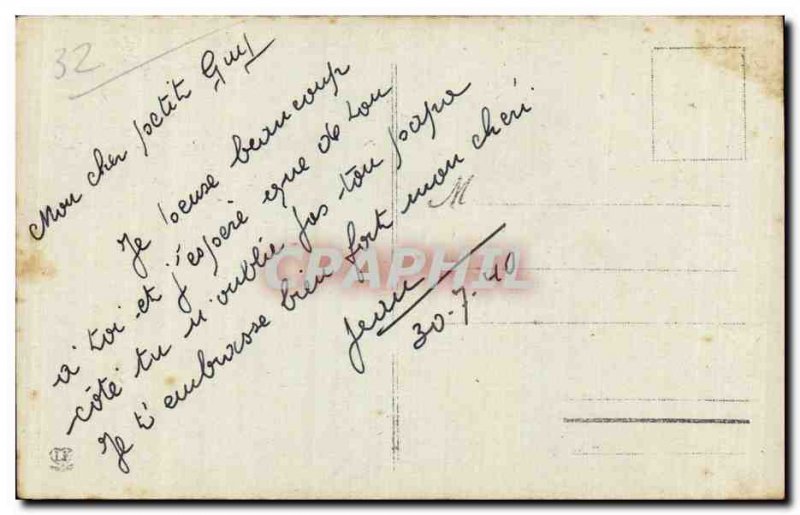 32
Mon cher petit Guy
Je pense beaucoup
à toi et j'espère que de ton
côté tu n'oublie pas ton papa
Je t'embrasse bien fort mon chéri.
Jean
30-7-40
M
CPAPHIL